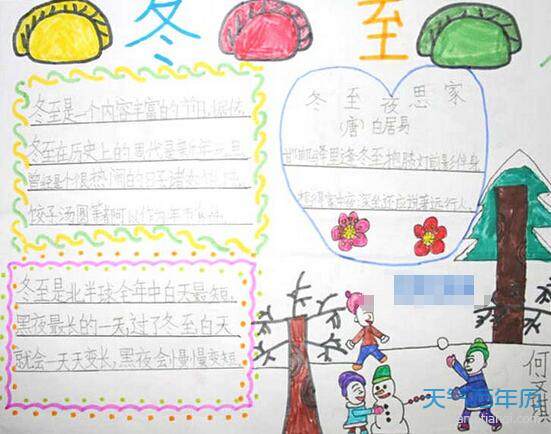 冬至
冬至是一个内容丰富的节日,据传,
冬至在历史上的周代是新年元旦
曾经是个很热闹的日子
饺子汤圆
冬至夜思家
(唐)白居易
邯郸驿里逢冬至抱膝灯前影伴身
想得家中夜深坐还应说着远行人。
冬至是北半球全年中白天最短,
黑夜最长的一天,过了冬至白天
就会一天天变长,黑夜会慢慢变短